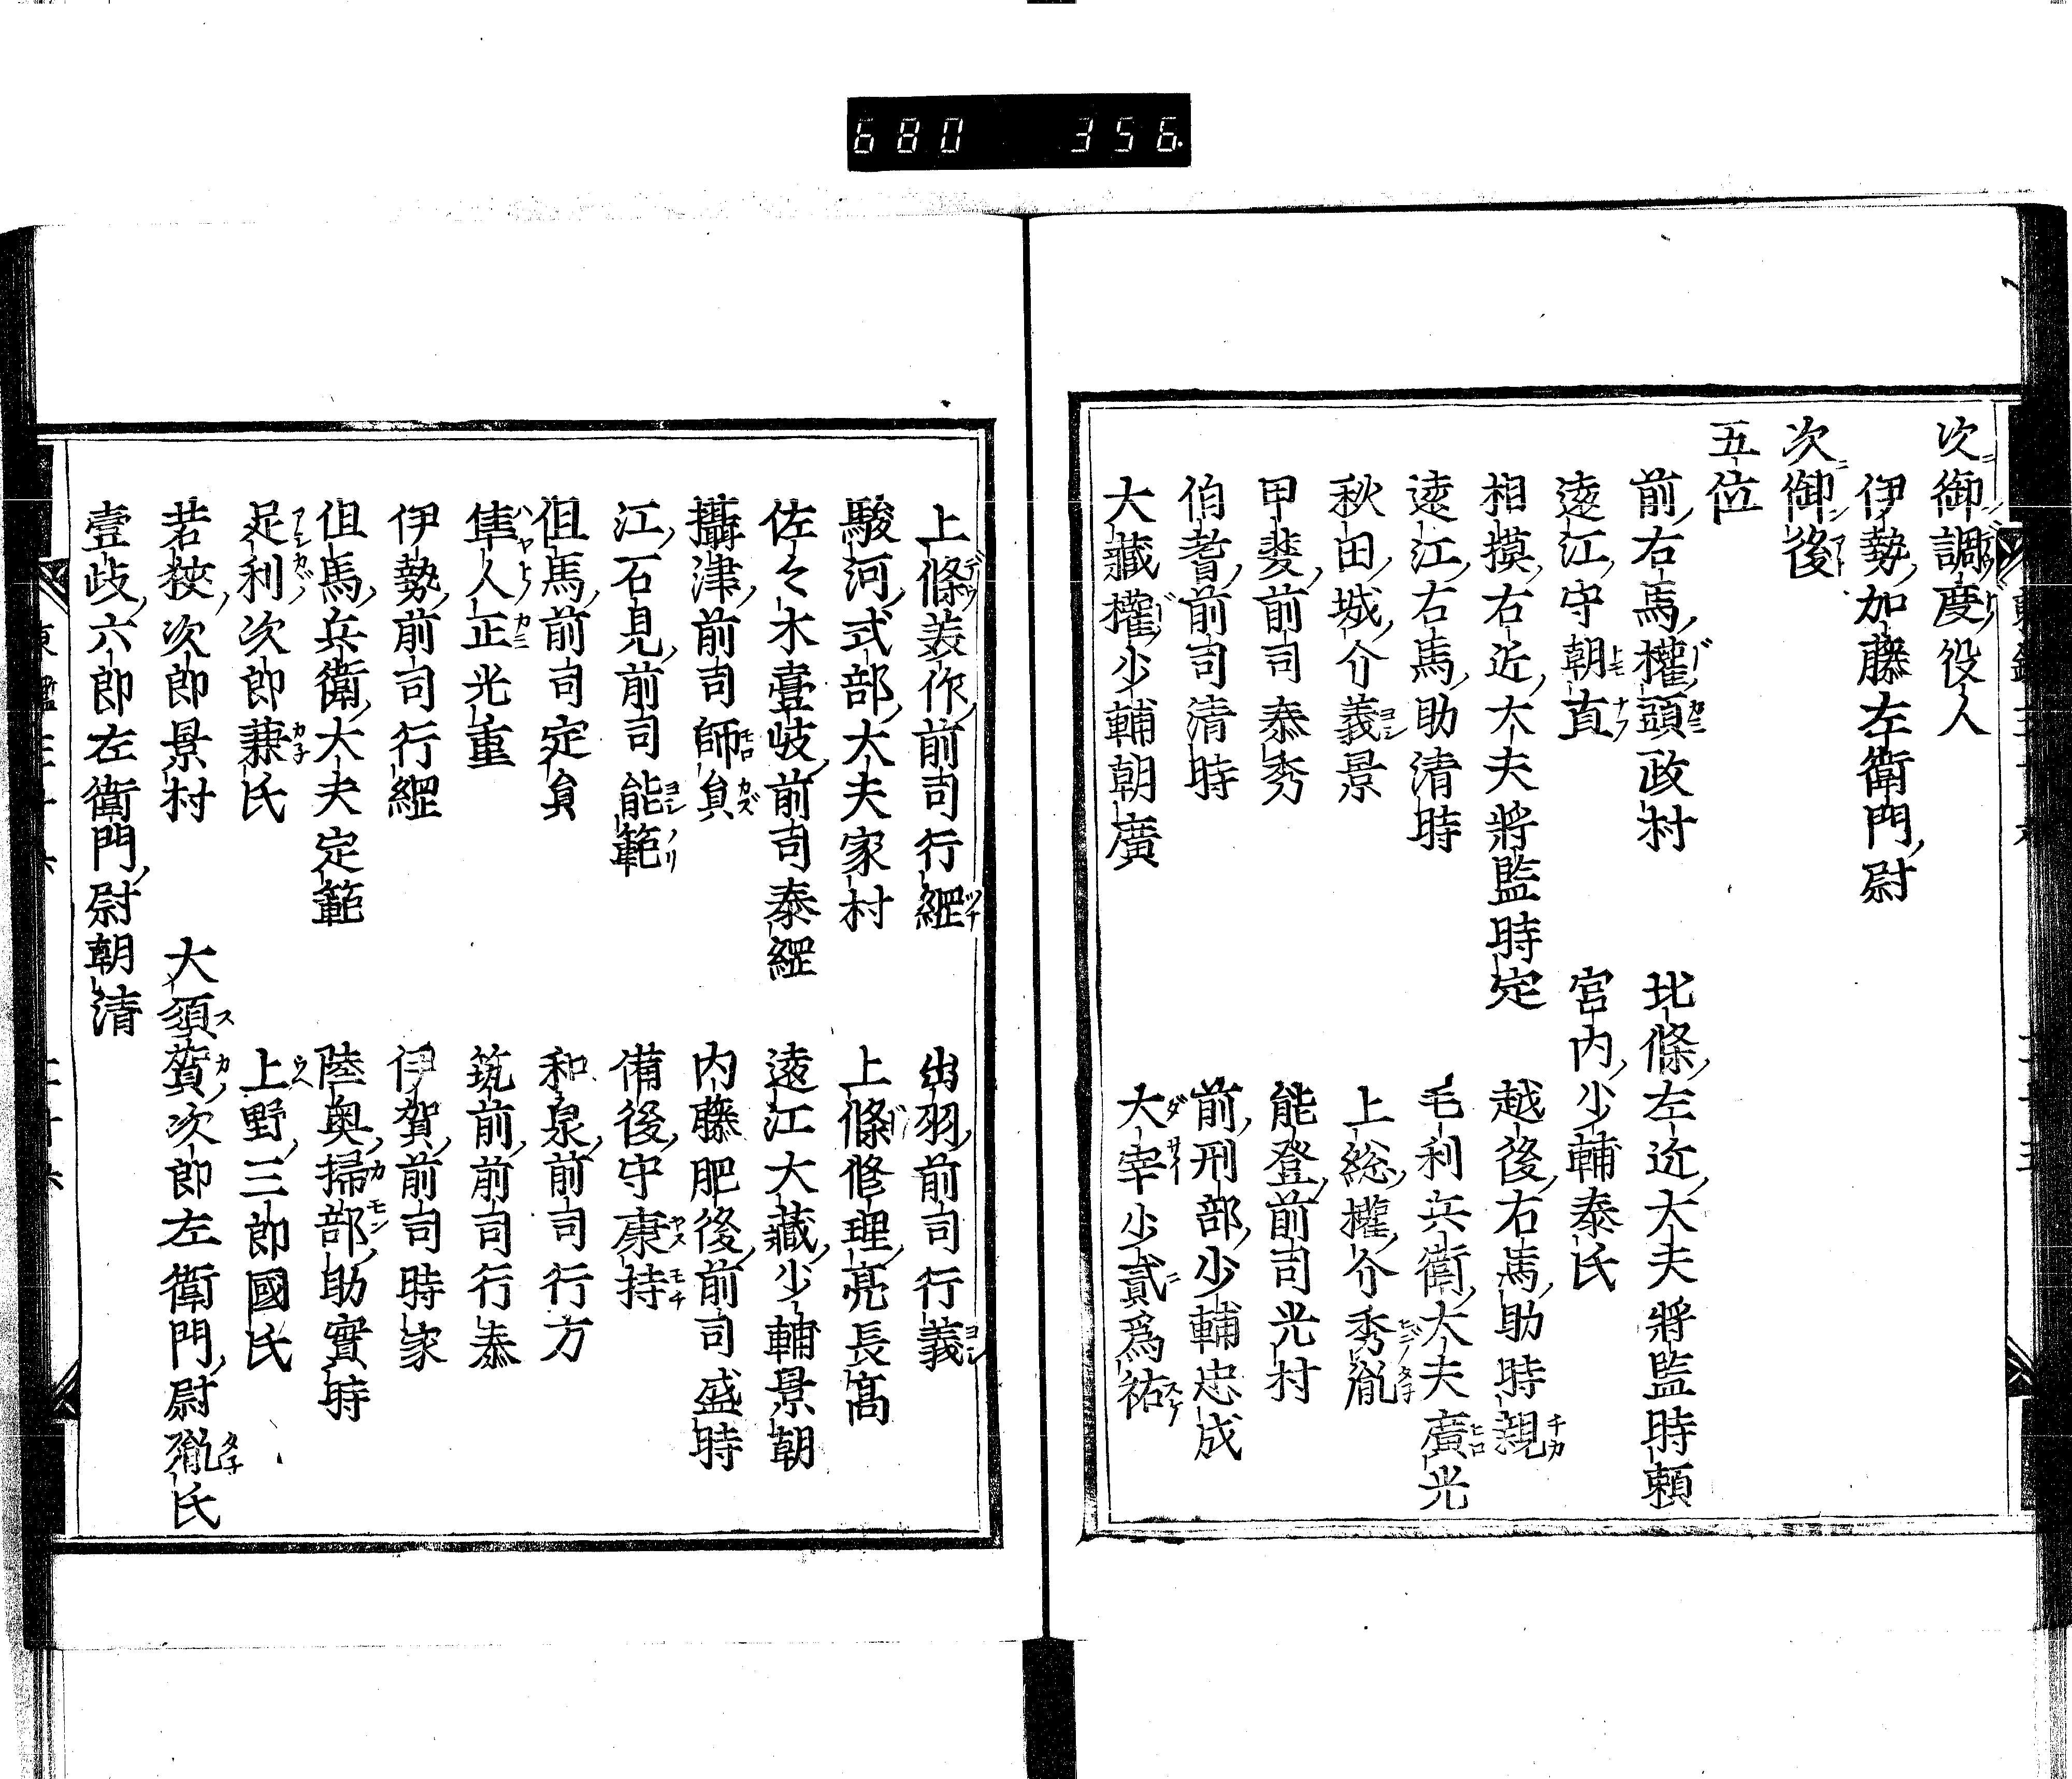 680 356
次御調度役人
伊勢加藤左衛門尉
次御後
五位
前右馬權頭政村 北條左近大夫將監時頼
遠江守朝直 宮内少輔泰氏
相摸右近大夫將監時定 越後右馬助時親
遠江右馬助清時 毛利兵衛大夫廣光
秋田城介義景 上総權介秀胤
甲斐前司泰秀 能登前司光村
伯耆前司清時 前刑部少輔忠成
大藏權少輔朝廣 大宰少貳爲祐
上條美作前司行綱 出羽前司行義
駿河式部大夫家村 上條修理亮長髙
佐々木壹岐前司泰綱 遠江大藏少輔景朝
攝津前司師員 内藤肥後前司盛時
江石見前司能範 備後守康持
但馬前司定員 和泉前司行方
隼人正光重 筑前前司行泰
伊勢前司行綱 伊賀前司時家
但馬兵衛大夫定範 陸奥掃部助實時
足利次郎兼氏 上野三郎國氏
若狹次郎景村 大須賀次郎左衛門尉胤氏
壹岐六郎左衛門尉朝清